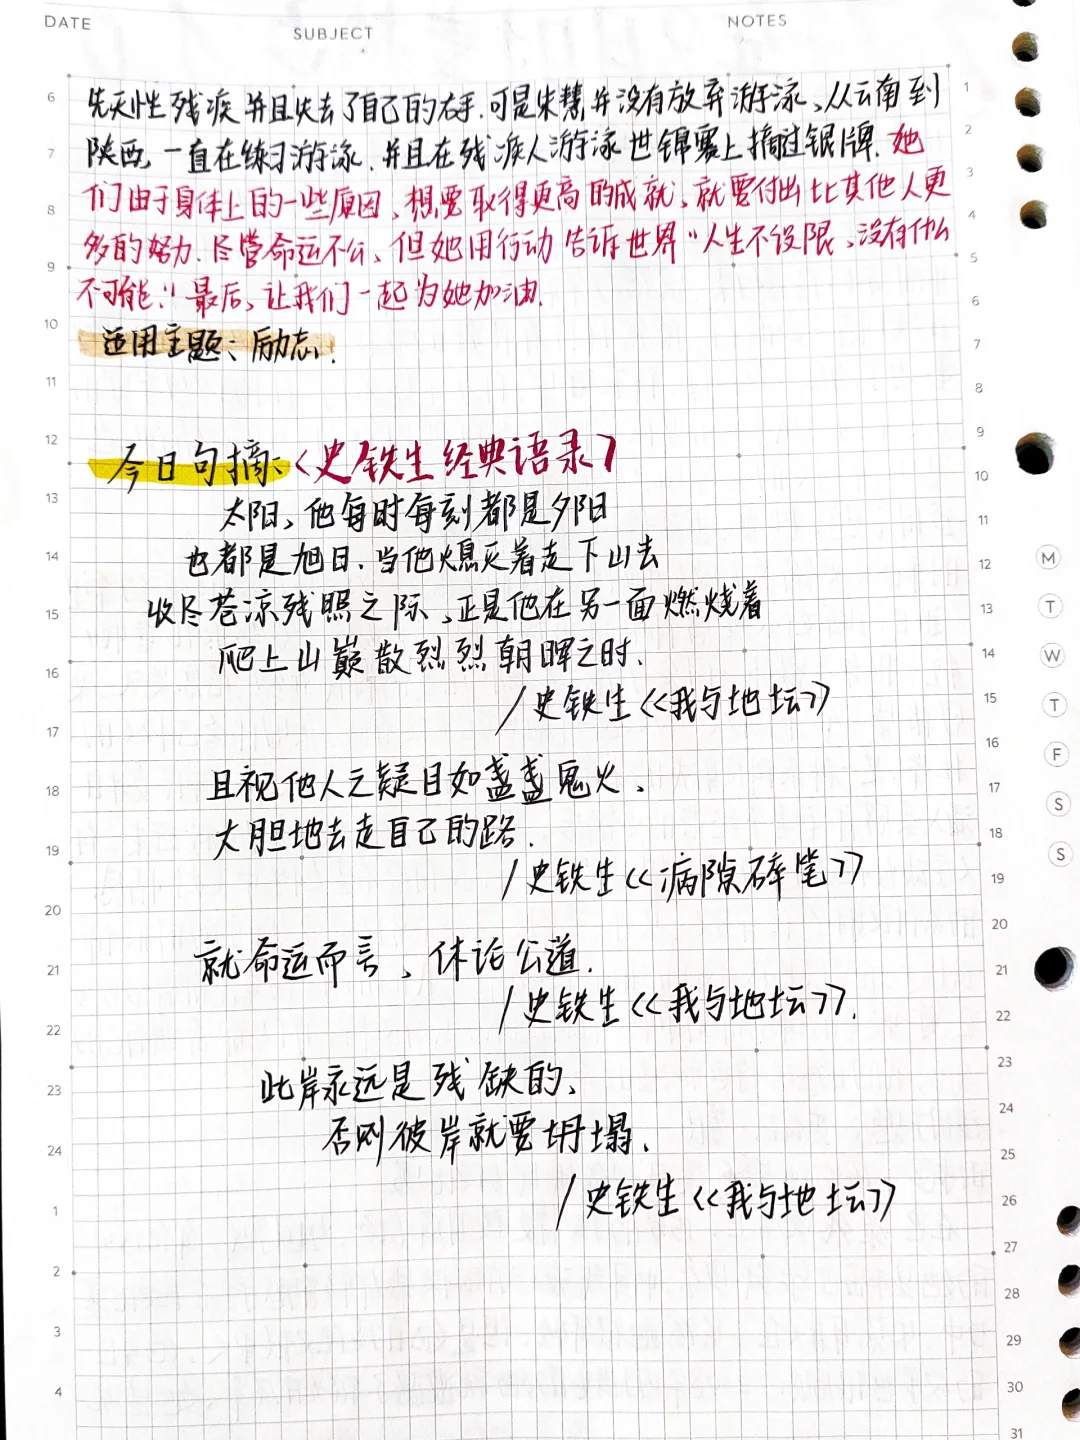 DATE
SUBJECT
NOTES
先天性残疾并且失去了自己的右手.可是朱慧并没有放弃游泳、从云南到
陕西,一直在练习游泳.并且在残疾人游泳世锦赛上摘过银牌.她
们由于身体上的一些原因、想要取得更高的成就、就要付出比其他人更
多的努力.尽管命运不公、但她用行动告诉世界"人生不设限、没有什么
不可能."最后、让我们一起为她加油.
适用主题:励志.
今日句摘:〈史铁生经典语录〉
太阳、他每时每刻都是夕阳
也都是旭日.当他熄灭着走下山去
收尽苍凉残照之际、正是他在另一面燃烧着
爬上山巅散烈烈朝晖之时.
/史铁生《我与地坛》
且视他人之疑目如盏盏鬼火、
大胆地去走自己的路.
/史铁生《病隙碎笔》
就命运而言、休论公道.
/史铁生《我与地坛》.
此岸永远是残缺的、
否则彼岸就要坍塌.
/史铁生《我与地坛》
6
7
8
9
10
11
12
13
14
15
16
17
18
19
20
21
22
23
24
1
2
3
4
1
2
3
4
5
6
7
8
9
10
11
12
13
14
15
16
17
18
19
20
21
22
23
24
25
26
27
28
29
30
31
M
T
W
T
F
S
S